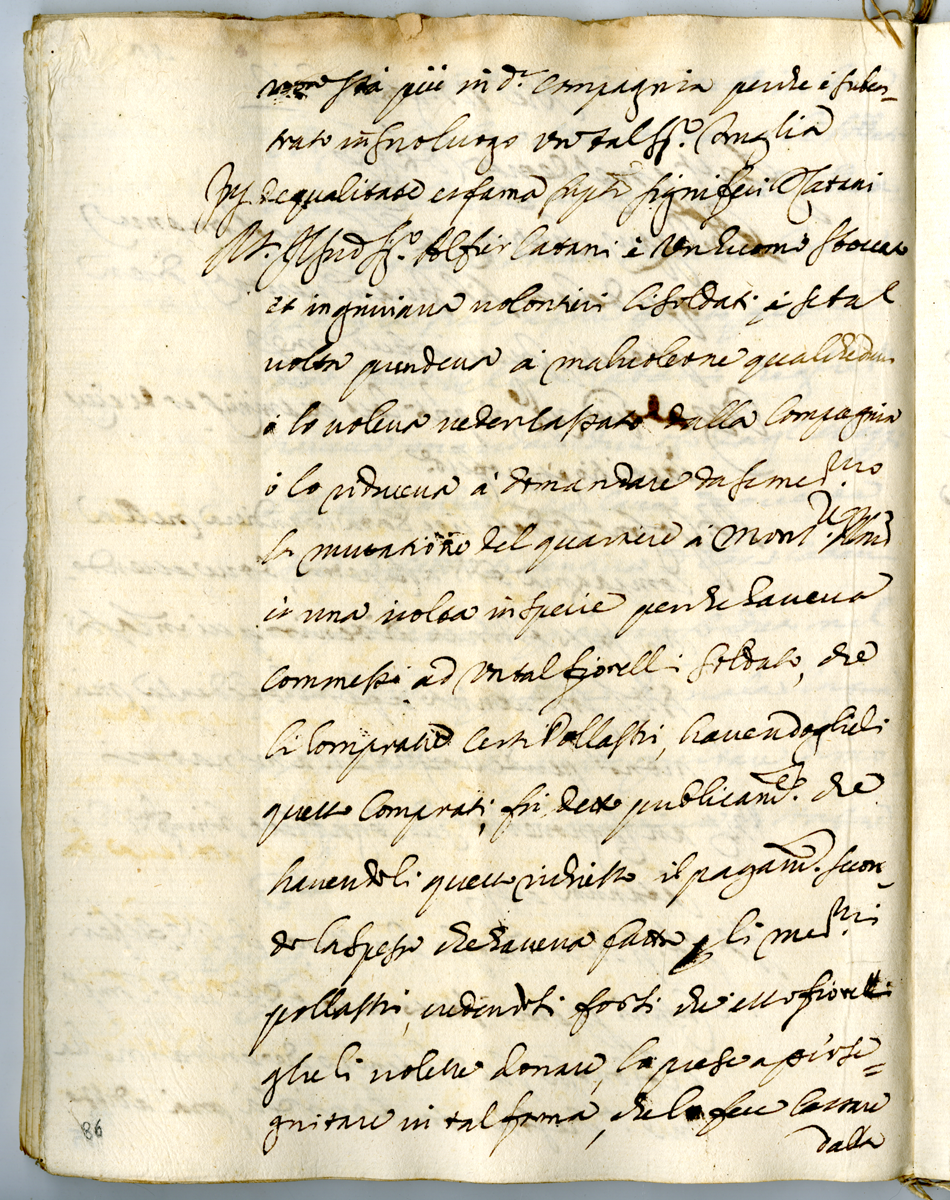 non stà più in d.ª Compagnia perche è suben=
trato in suo luogo un tal S.r Puglia
Int. de qualitate et fama sup.ti signiferi Catani
R.t Il sud.º S.r Alfier Catani è un huomo
et ingiuriava volontieri li soldati, e se tal
volta prendeva à malivolenne qualcheduno
ò lo voleva veder cassato dalla Compagnia
ò lo riduceva à domandare da se med.mo
la mutatione del quartiere à
et una volta in specie perche haveva
commessi ad un tal fiorelli soldato, che
li comprasse certi Pollastri, havendoglieli
questo comprati, fù detto publicam.te che
havendoli questo richiesto il pagam.to secon=
do la spesa che haveva fatta p li med.mi
pollastri, credendosi forsi che esso fiorelli
glie li volesse donare, lo prese a perse=
guitare in tal forma, che lo fece cassare
dalla
86